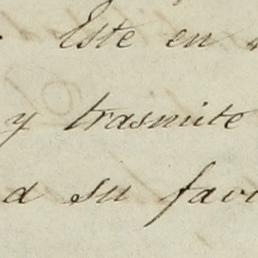 Este en
y trasmite
a su favo